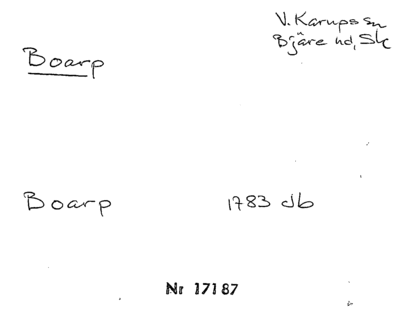 V. Karups sn
Bjäre hd, Sk
Boarp
Boarp 1783 db
Nr 17187